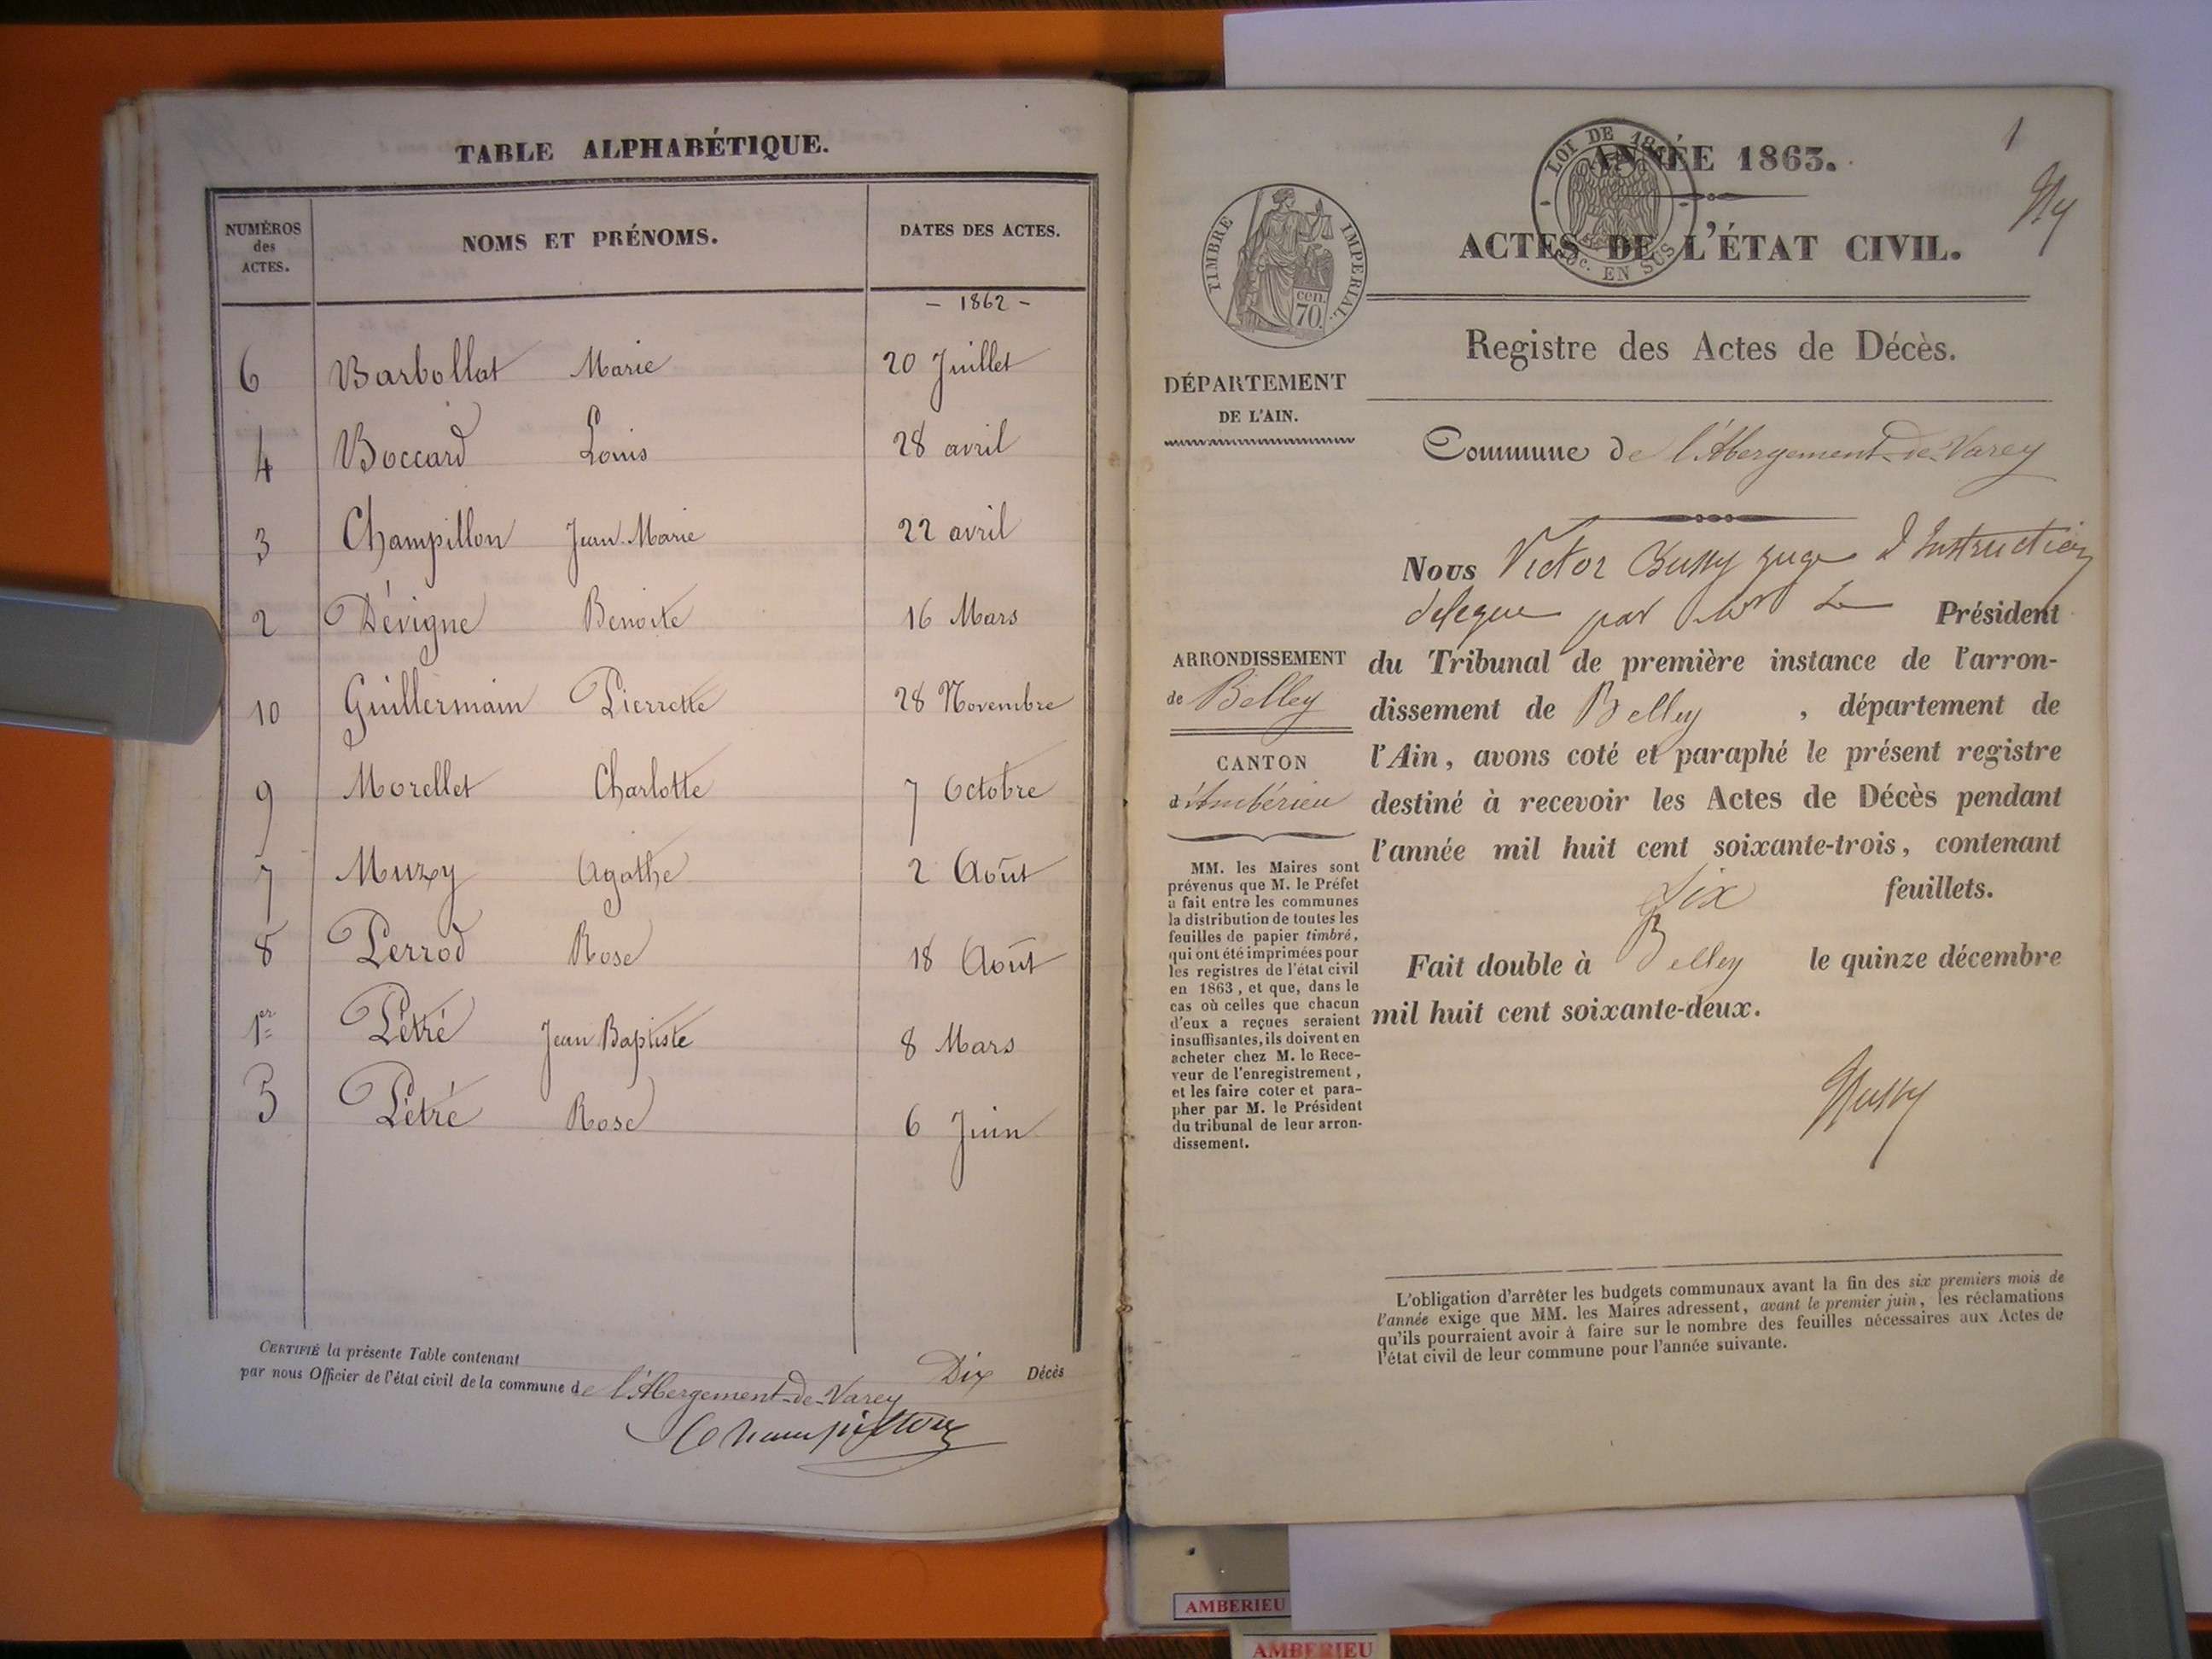 TABLE ALPHABÉTIQUE.
NUMÉROS des ACTES. NOMS ET PRÉNOMS. DATES DES ACTES.
- 1862 -
6 Barbollat Marie 20 Juillet
4 Boccard Louis 28 avril
3 Champillon Jean-Marie 22 avril
2 Dévigne Benoite 16 Mars
10 Guillermain Pierrette 28 Novembre
9 Morellet Charlotte 7 Octobre
7 Muzy Agathe 2 Août
8 Perrod Rose 18 Août
1er Pétré Jean Baptiste 8 Mars
5 Pétré Rose 6 Juin
CERTIFIÉ la présente Table contenant Dix Décès
par nous Officier de l'état civil de la commune de l'Abergement-de-Varey
Champillon
1
ANNÉE 1863.
LOI DE
EN SUS
ACTES DE L'ÉTAT CIVIL.
TIMBRE IMPERIAL.
cen.
70.
Registre des Actes de Décès.
DÉPARTEMENT
DE L'AIN.
Commune de l'Abergement-de-Varey
Nous Victor Bussy juge d'Instruction
délégué par Mr Le Président
du Tribunal de première instance de l'arron-
dissement de Belley , département de
l'Ain, avons coté et paraphé le présent registre
destiné à recevoir les Actes de Décès pendant
l'année mil huit cent soixante-trois, contenant
Six feuillets.
Fait double à Belley le quinze décembre
mil huit cent soixante-deux.
Bussy
ARRONDISSEMENT
de Belley
CANTON
d'Ambérieu
MM. les Maires sont
prévenus que M. le Préfet
a fait entre les communes
la distribution de toutes les
feuilles de papier timbré,
qui ont été imprimées pour
les registres de l'état civil
en 1863, et que, dans le
cas où celles que chacun
d'eux a reçues seraient
insuffisantes, ils doivent en
acheter chez M. le Rece-
veur de l'enregistrement,
et les faire coter et para-
pher par M. le Président
du tribunal de leur arron-
dissement.
L'obligation d'arrêter les budgets communaux avant la fin des six premiers mois de
l'année exige que MM. les Maires adressent, avant le premier juin, les réclamations
qu'ils pourraient avoir à faire sur le nombre des feuilles nécessaires aux Actes de
l'état civil de leur commune pour l'année suivante.
AMBERIEU
AMBERIEU